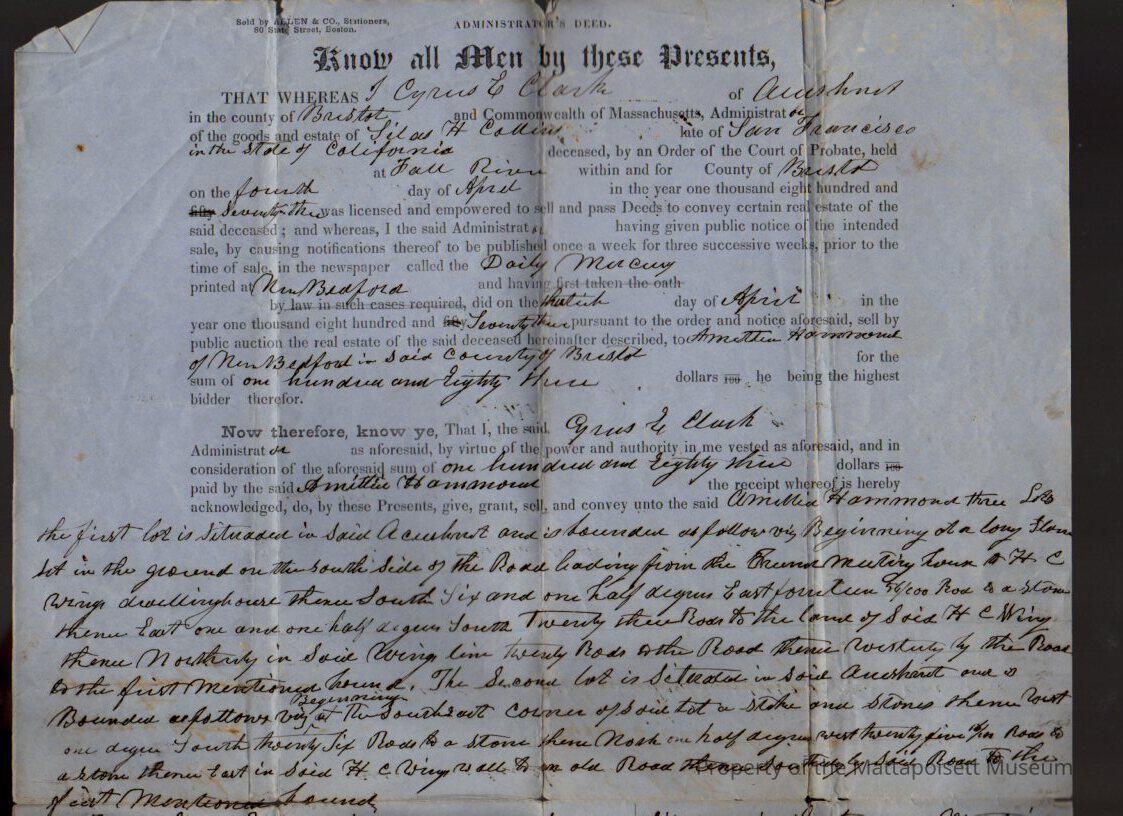 Sold by ALLEN & CO., Stationers,
80 State Street, Boston.
ADMINISTRATOR'S DEED.
Know all Men by these Presents,
THAT WHEREAS I Cyrus E Clark of Acushnet
in the county of Bristol and Commonwealth of Massachusetts, Administrator
of the goods and estate of Silas H Collins late of San Francisco
in the State of California deceased, by an Order of the Court of Probate, held
at Fall River within and for County of Bristol
on the fourth day of April in the year one thousand eight hundred and
fifty Seventy three was licensed and empowered to sell and pass Deeds to convey certain real estate of the
said deceased; and whereas, I the said Administrator having given public notice of the intended
sale, by causing notifications thereof to be published once a week for three successive weeks, prior to the
time of sale, in the newspaper called the Daily Mercury
printed at New Bedford and having first taken the oath
by law in such cases required, did on the day of April in the
year one thousand eight hundred and fifty Seventy three pursuant to the order and notice aforesaid, sell by
public auction the real estate of the said deceased hereinafter described, to Amittia Hammond
of New Bedford in said County of Bristol for the
sum of one hundred and Eighty three dollars 100 he being the highest
bidder therefor.
Now therefore, know ye, That I, the said, Cyrus E Clark
Administrator as aforesaid, by virtue of the power and authority in me vested as aforesaid, and in
consideration of the aforesaid sum of one hundred and Eighty three dollars 100
paid by the said Amittia Hammond the receipt whereof is hereby
acknowledged, do, by these Presents, give, grant, sell, and convey unto the said Amittia Hammond three Lots
the first lot is Situated in Said Acushnet and is bounded as follow viz Beginning at a long Stone
Set in the ground on the South Side of the Road leading from the Friend Meeting house to H C
Wings dwellinghouse thence South Six and one half degrees East fourteen 56/100 Rod to a Stone
thence East one and one half degrees South Twenty three Rods to the land of Said H C Wing
thence Northerly in Said Wings line twenty Rods to the Road thence Westerly by the Road
to the first Mentioned bound. The Second lot is Situated in Said Acushnet and is
Bounded as follows viz Beginning at the Southeast Corner of Said lot a Stake and Stones thence West
one degree South twenty Six Rods to a Stone thence North one half degree west twenty five Rods to
a Stone thence East in Said H C Wings wall to an old Road thence Southerly by Said Road to the
first Mentioned bound
Property of the Mattapoisett Museum